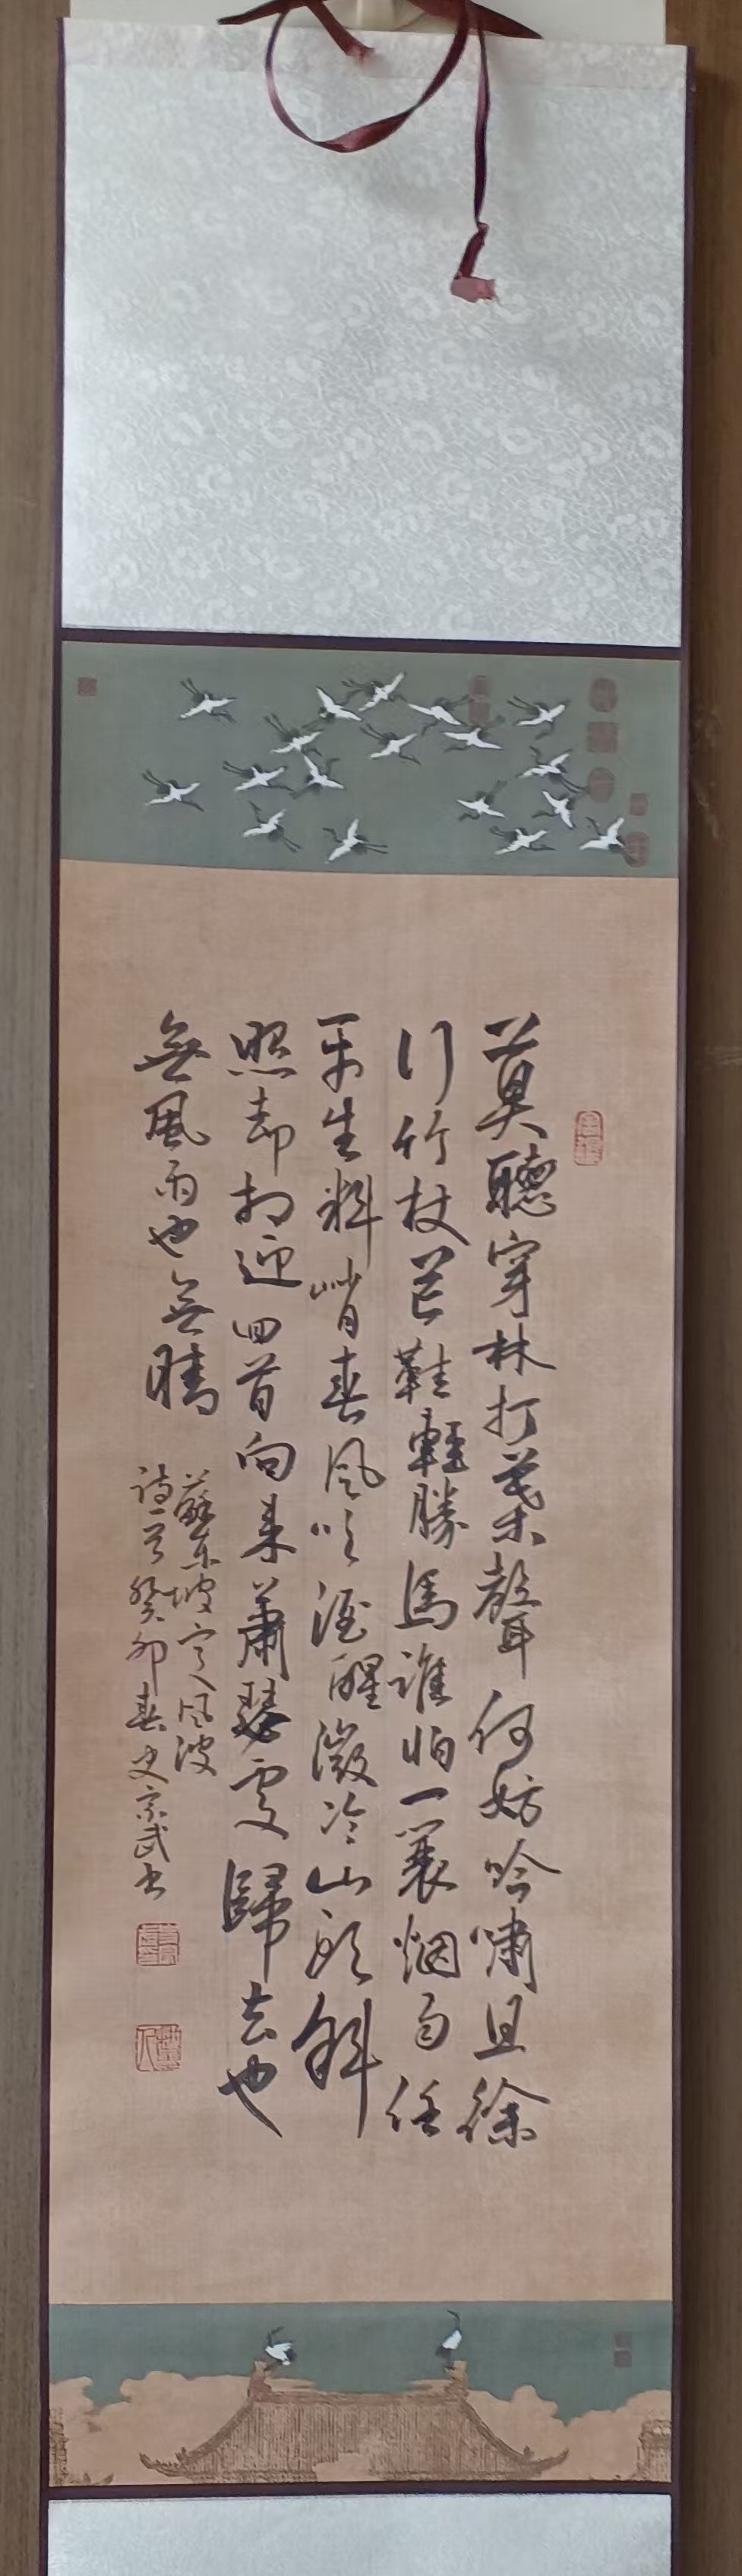 莫聽穿林打葉聲何妨吟嘯且徐
行竹杖芒鞋輕勝馬誰怕一蓑烟雨任
平生料峭春風吹酒醒微冷山頭斜
照却相迎回首向来蕭瑟處歸去也
無風雨也無晴
蘇东坡定风波
詩意癸卯春史宗武書